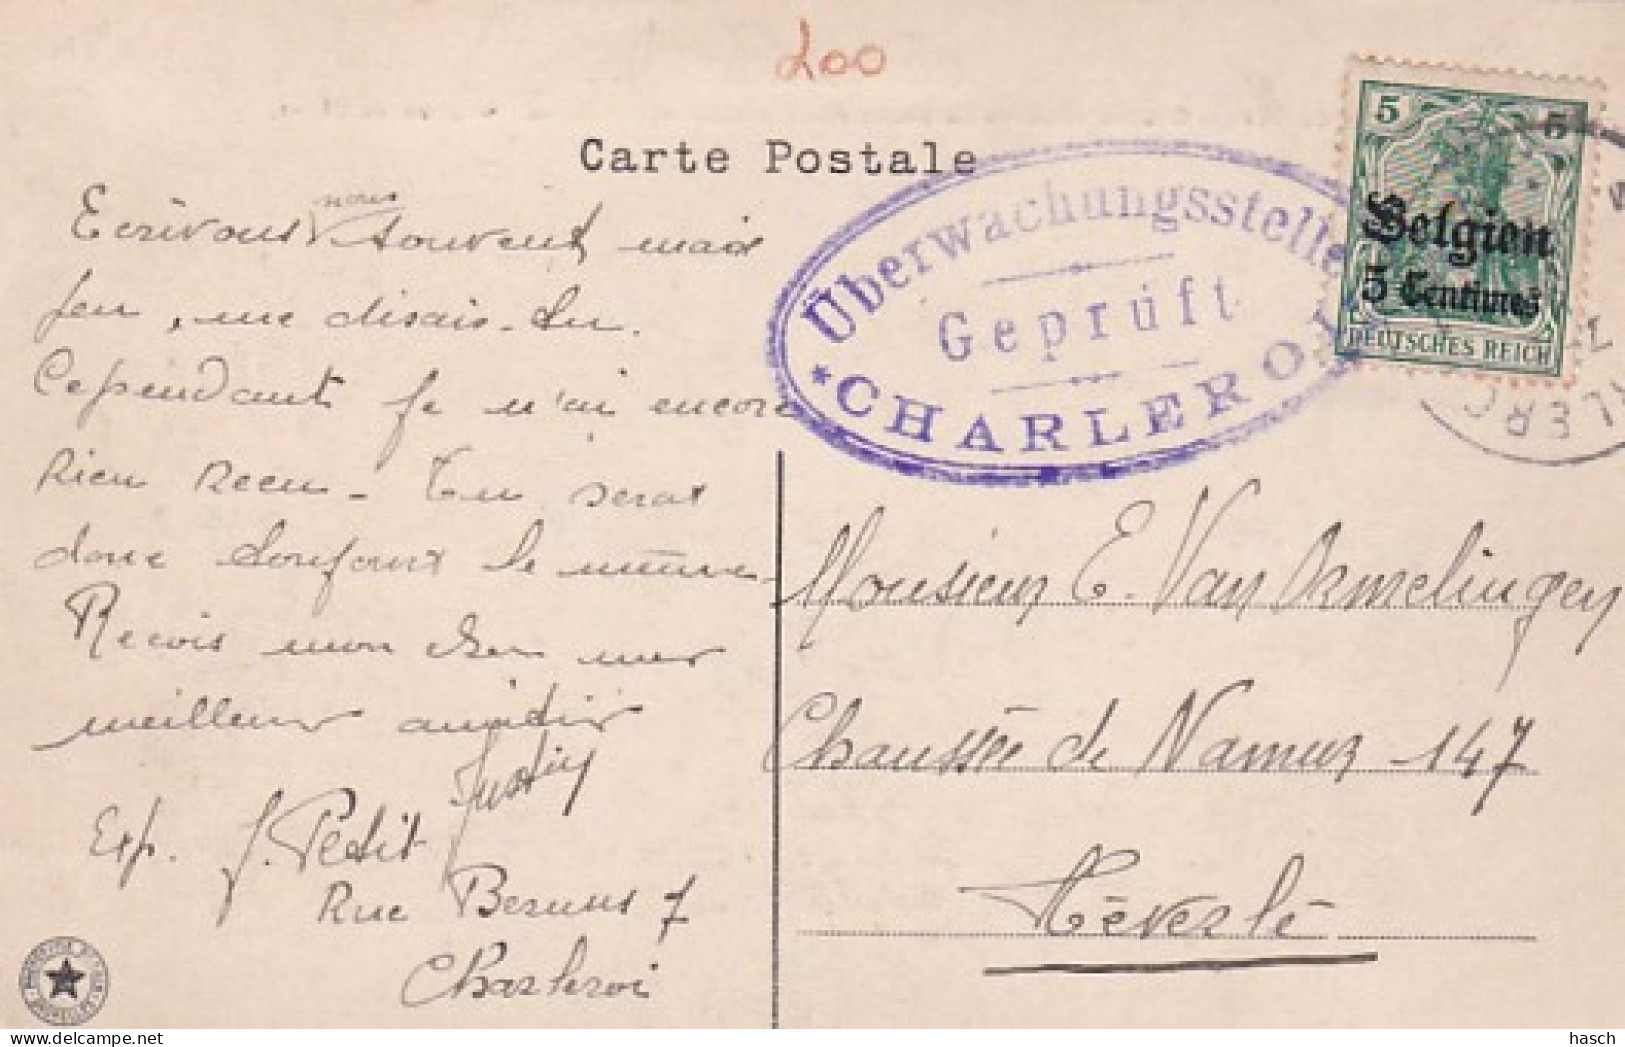 200
Carte Postale
Ecrivons nous souvent mais
peu, me disais-tu.
Cependant je n'ai encore
rien reçu - Tu seras
donc toujours le même
Reçois mon cher mes
meilleur amitiés
Justin
Exp. J. Petit
Rue 7
Charleroi
Überwachungsstelle
Geprüft
* CHARLEROI
5 5
Belgien
5 Centimes
DEUTSCHES REICH
Monsieur E. Van Dermelingen
Chaussée de Namur 147
Héverlé
hasch
delcampe.net